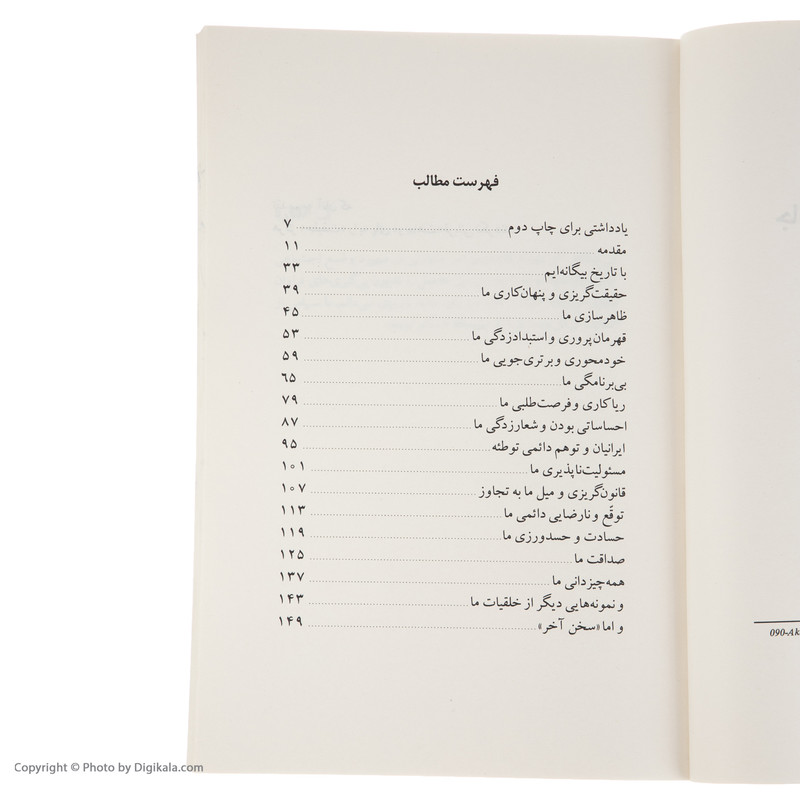 فهرست مطالب
یادداشتی برای چاپ دوم ........ ۷
مقدمه ........ ۱۱
با تاریخ بیگانه‌ایم ........ ۳۳
حقیقت‌گریزی و پنهان‌کاری ما ........ ۳۹
ظاهرسازی ما ........ ۴۵
قهرمان‌پروری و استبدادزدگی ما ........ ۵۳
خودمحوری و برتری‌جویی ما ........ ۵۹
بی‌برنامگی ما ........ ۶۵
ریاکاری و فرصت‌طلبی ما ........ ۷۹
احساساتی بودن و شعارزدگی ما ........ ۸۷
ایرانیان و توهم دائمی توطئه ........ ۹۵
مسئولیت‌ناپذیری ما ........ ۱۰۱
قانون‌گریزی و میل ما به تجاوز ........ ۱۰۷
توقّع و نارضایی دائمی ما ........ ۱۱۳
حسادت و حسدورزی ما ........ ۱۱۹
صداقت ما ........ ۱۲۵
همه‌چیزدانی ما ........ ۱۳۷
و نمونه‌هایی دیگر از خلقیات ما ........ ۱۴۳
و اما «سخن آخر» ........ ۱۴۹
090-Ak
Copyright © Photo by Digikala.com